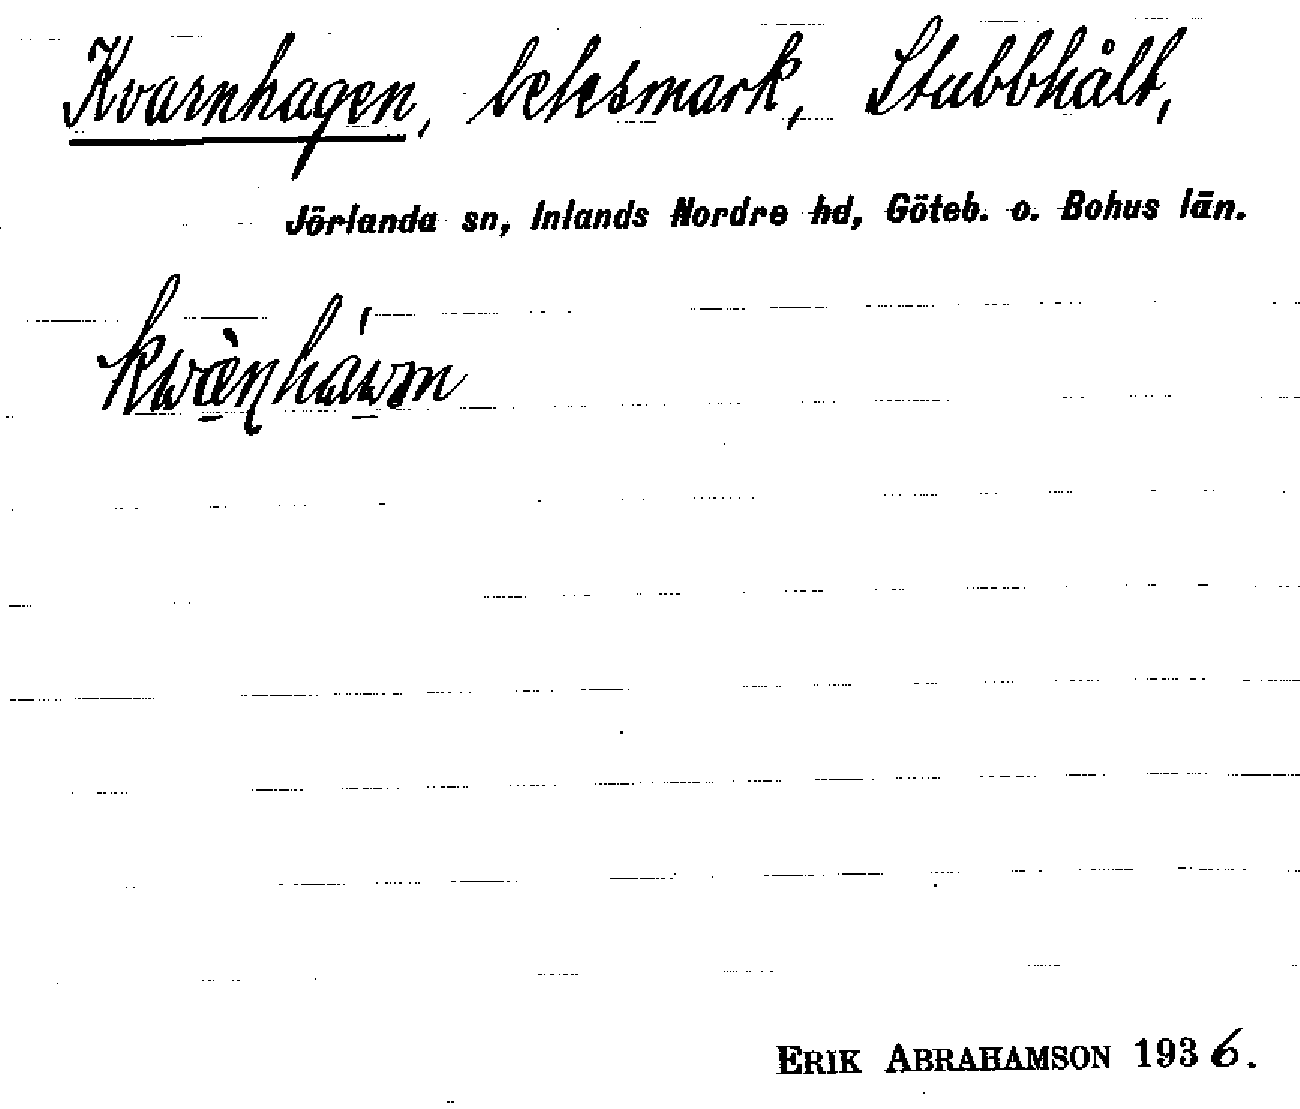 Kvarnhagen, betesmark, Stubbhålt,
Jörlanda sn, Inlands Nordre hd, Göteb. o. Bohus län.
ERIK ABRAHAMSON 1936.